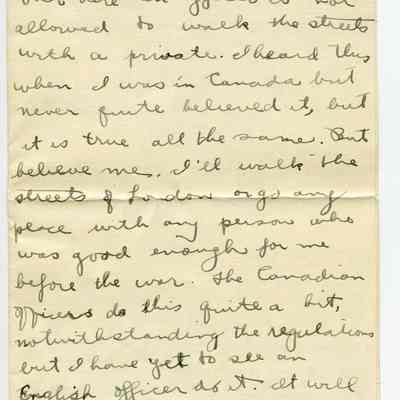 over here an officer is not
allowed to walk the streets
with a private. I heard this
when I was in Canada but
never quite believed it, but
it is true all the same. But
believe me, I'll walk the
streets of London or go any
place with any person who
was good enough for me
before the war. The Canadian
officers do this quite a bit,
notwithstanding the regulations
but I have yet to see an
English officer do it. It will